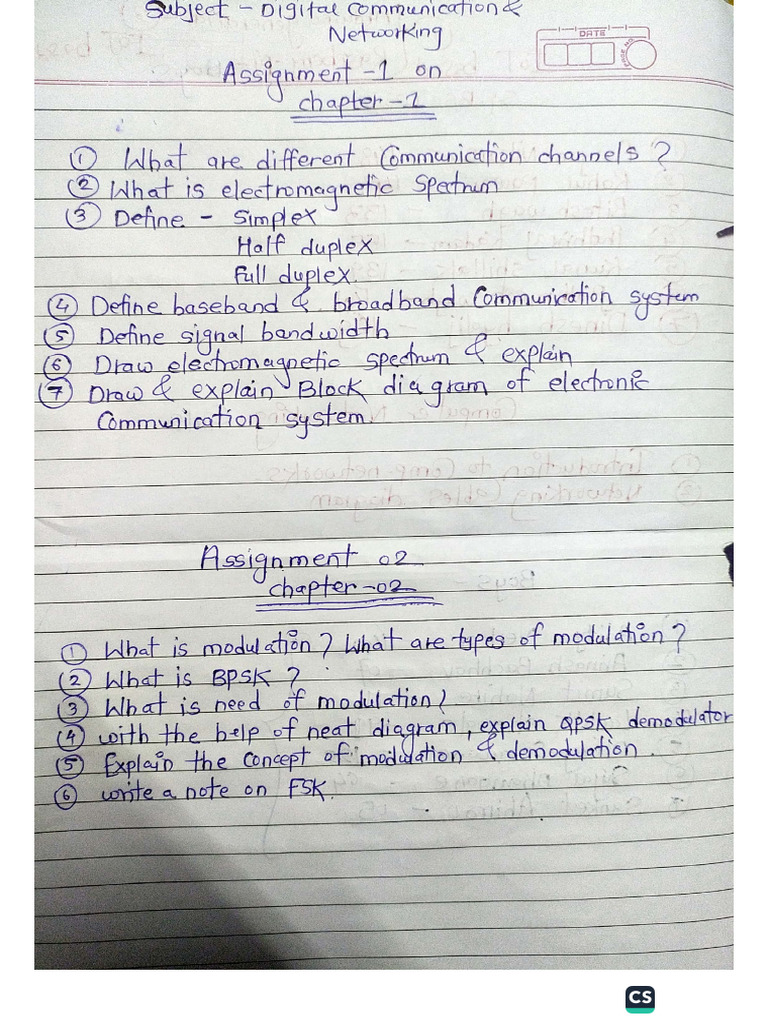 Subject - Digital Communication &
Networking
DATE
Assignment -1 on
chapter -1
① What are different Communication channels ?
② What is electromagnetic Spectrum
③ Define - Simplex
Half duplex
Full duplex
④ Define baseband & broadband Communication system
⑤ Define signal bandwidth
⑥ Draw electromagnetic spectrum & explain
⑦ Draw & explain Block diagram of electronic
Communication system.
Assignment 02
chapter-02
① What is modulation? What are types of modulation?
② What is BPSK ?
③ What is need of modulation?
④ with the help of neat diagram, explain QPSK demodulator
⑤ Explain the concept of modulation & demodulation.
⑥ write a note on FSK.
CS